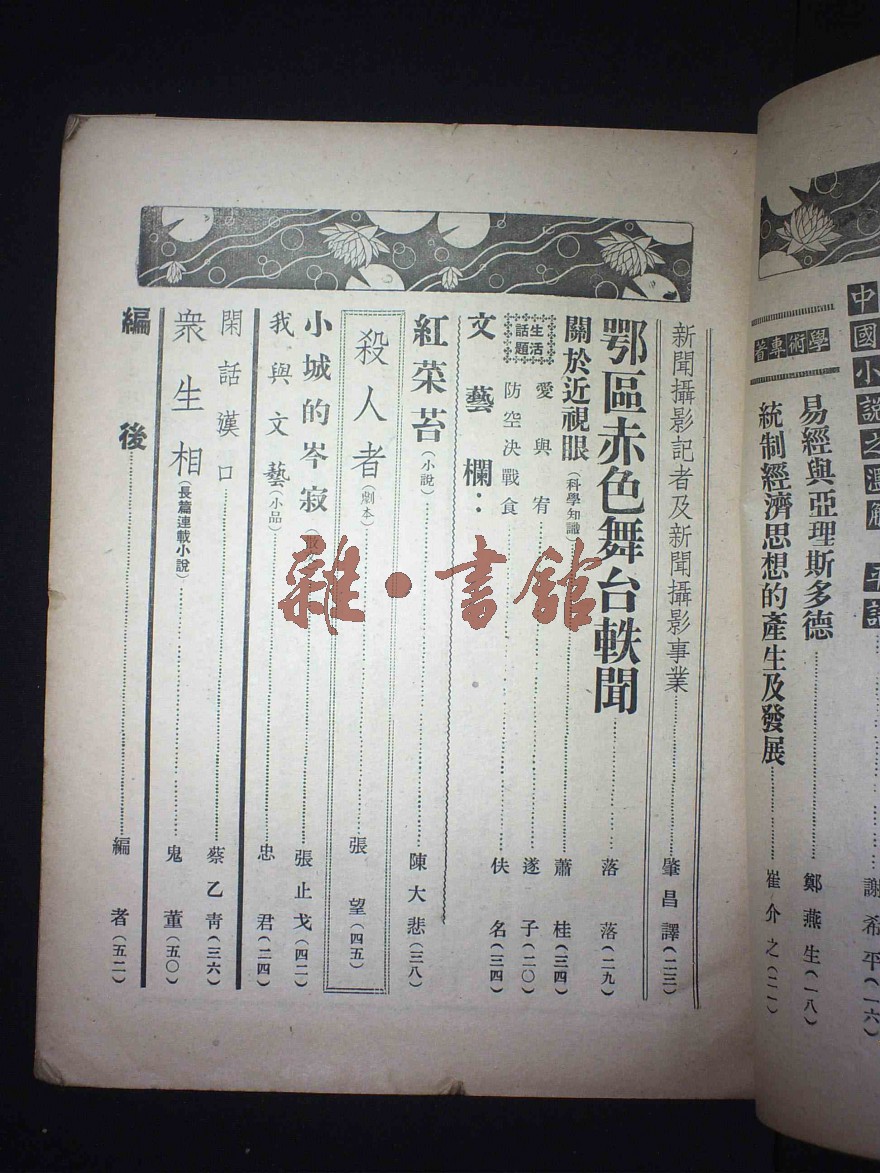 中國小說之
學術專著
易經與亞理斯多德 鄭燕生(一八)
統制經濟思想的產生及發展 崔介之(二一)
謝希平(一六)
新聞攝影記者及新聞攝影事業 肇昌譯(二三)
鄂區赤色舞台軼聞 落落(二九)
關於近視眼(科學知識) 蕭桂(三四)
生活話題
愛與宥 遂子(二〇)
防空決戰食 佚名(三四)
文藝欄：
紅菜苔(小說) 陳大悲(三八)
殺人者(劇本) 張望(四五)
小城的岑寂 張止戈(四二)
我與文藝(小品) 忠君(二四)
閑話漢口 蔡乙青(三六)
衆生相(長篇連載小說) 鬼董(五〇)
編後 編者(五二)
雜·書館